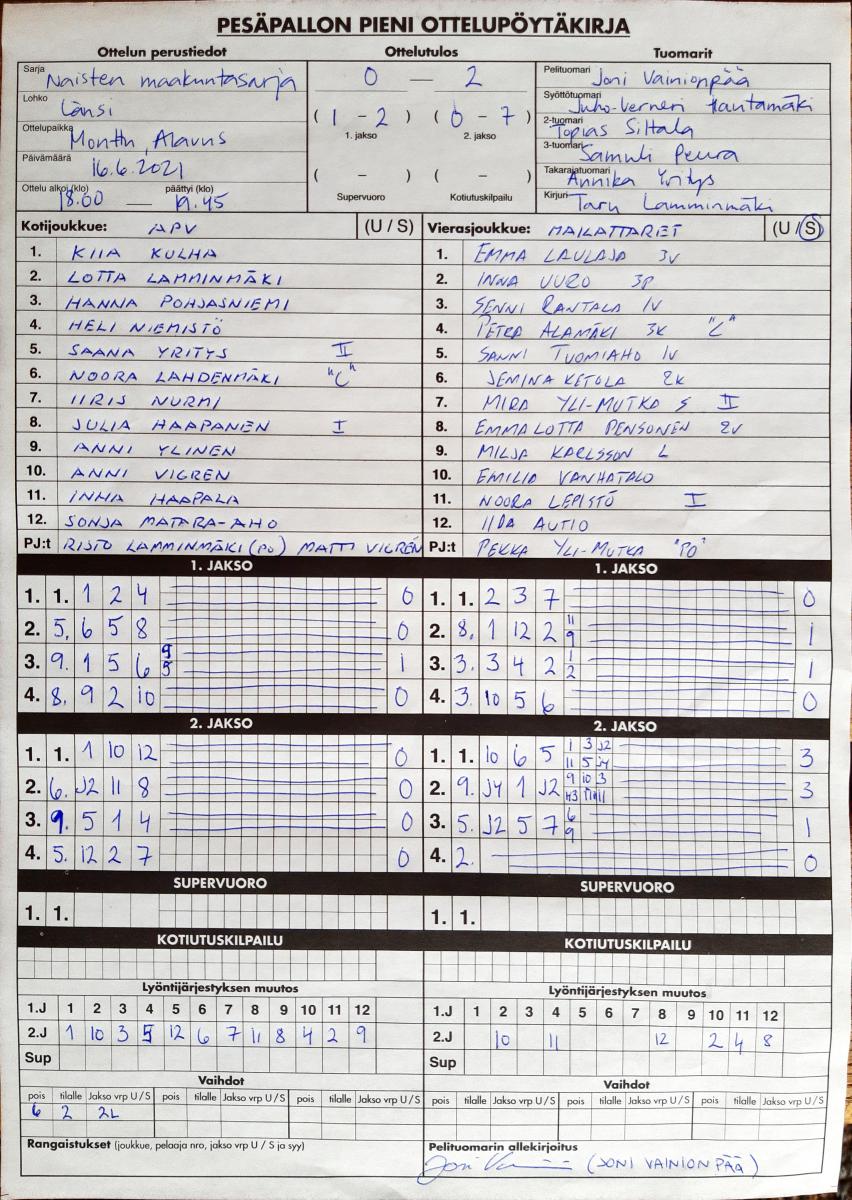 PESÄPALLON PIENI OTTELUPÖYTÄKIRJA
Ottelun perustiedot
Sarja Naisten maakuntasarja
Lohko Länsi
Ottelupaikka Monttu, Alavus
Päivämäärä 16.6.2021
Ottelu alkoi (klo) päättyi (klo)
18.00 — 19.45
Ottelutulos
0 — 2
( 1 - 2 ) ( 0 - 7 )
1. jakso 2. jakso
( - ) ( - )
Supervuoro Kotiutuskilpailu
Tuomarit
Pelituomari Joni Vainionpää
Syöttötuomari Juho-Verneri Hautamäki
2-tuomari Topias Siltala
3-tuomari Samuli Peura
Takarajatuomari Annika Yritys
Kirjuri Taru Lamminmäki
Kotijoukkue: APV (U / S)
1. KIIA KULHA
2. LOTTA LAMMINMÄKI
3. HANNA POHJASNIEMI
4. HELI NIEMISTÖ
5. SAANA YRITYS II
6. NOORA LAHDENMÄKI "C"
7. IIRIS NURMI
8. JULIA HAAPANEN I
9. ANNI YLINEN
10. ANNI VIGREN
11. INKA HAAPALA
12. SONJA MATARA-AHO
PJ:t RISTO LAMMINMÄKI (PO) MATTI VIGRÉN
Vierasjoukkue: MAILATTARET (U / S)
1. EMMA LAULAJA 3V
2. INNA UURO 3P
3. SENNI RANTALA 1V
4. PETRA ALAMÄKI 3K "C"
5. SANNI TUOMIAHO 1V
6. JEMINA KETOLA 2K
7. MIRA YLI-MUTKA S II
8. EMMALOTTA PENSONEN 2V
9. MILJA KARLSSON L
10. EMILIA VANHATALO
11. NOORA LEPISTÖ I
12. IIDA AUTIO
PJ:t PEKKA YLI-MUTKA "PO"
1. JAKSO
1. 1. 1 2 4 0
2. 5. 6 5 8 0
3. 9. 1 5 6 9 5 1
4. 8. 9 2 10 0
1. JAKSO
1. 1. 2 3 7 0
2. 8. 1 12 2 11 9 1
3. 3. 3 4 2 1 2 1
4. 3. 10 5 6 0
2. JAKSO
1. 1. 1 10 12 0
2. 6. J2 11 8 0
3. 9. 5 1 4 0
4. 5. 12 2 7 0
2. JAKSO
1. 1. 10 6 5 1 3 J2 3
11 5 J4
2. 9. J4 1 J2 9 10 3 3
3. 5. J2 5 7 6 9 1
4. 2. 0
SUPERVUORO
1. 1.
SUPERVUORO
1. 1.
KOTIUTUSKILPAILU
KOTIUTUSKILPAILU
Lyöntijärjestyksen muutos
1.J 1 2 3 4 5 6 7 8 9 10 11 12
2.J 1 10 3 5 12 6 7 11 8 4 2 9
Sup
Lyöntijärjestyksen muutos
1.J 1 2 3 4 5 6 7 8 9 10 11 12
2.J 10 11 12 2 4 8
Sup
Vaihdot
pois tilalle Jakso vrp U / S pois tilalle Jakso vrp U / S pois tilalle Jakso vrp U / S
6 2 2L
Vaihdot
pois tilalle Jakso vrp U / S pois tilalle Jakso vrp U / S pois tilalle Jakso vrp U / S
Rangaistukset (joukkue, pelaaja nro, jakso vrp U / S ja syy)
Pelituomarin allekirjoitus
(JONI VAINIONPÄÄ)